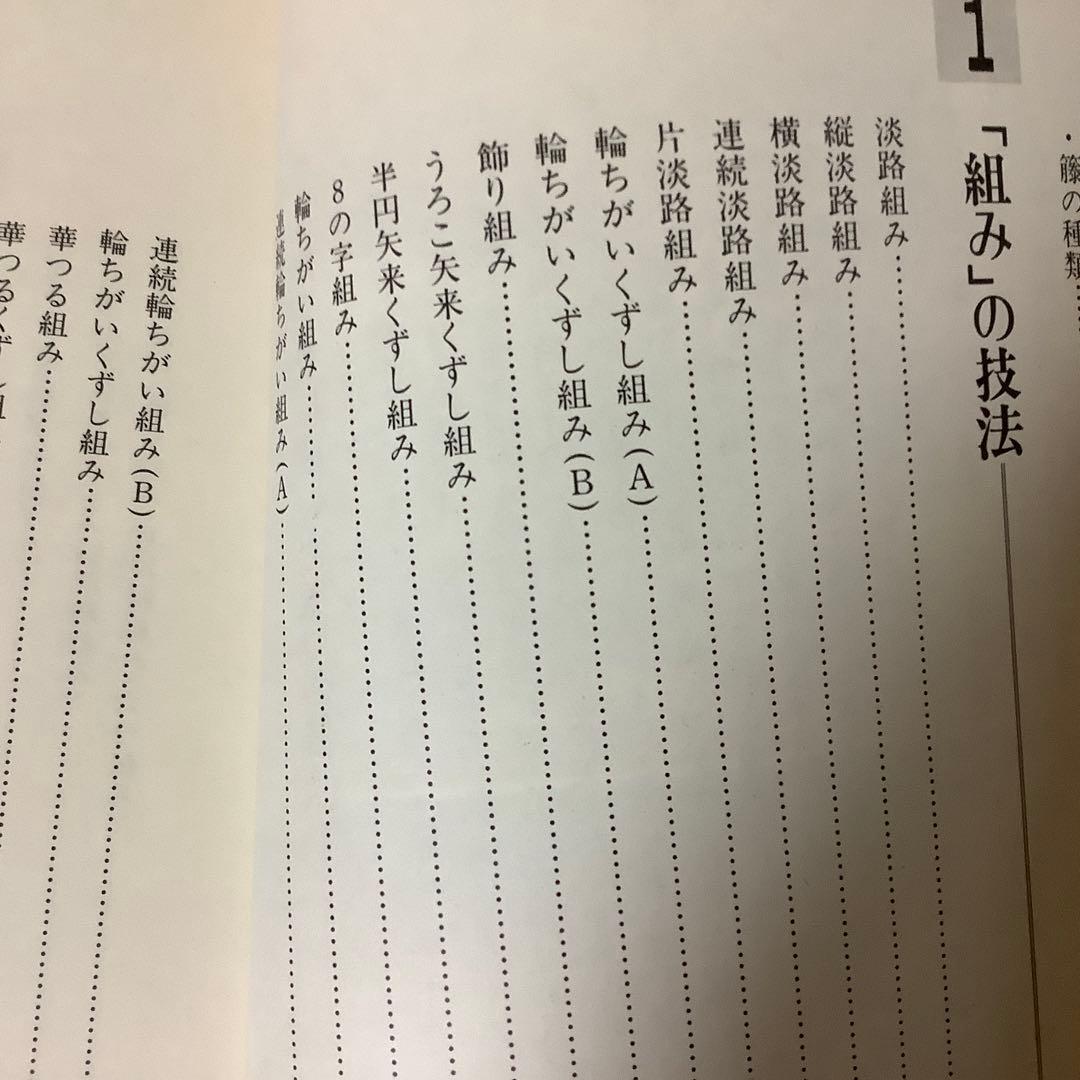 ・籐の種類……
1
「組み」の技法
淡路組み
縦淡路組み
横淡路組み
連続淡路組み
片淡路組み
輪ちがいくずし組み(A)
輪ちがいくずし組み(B)
飾り組み
うろこ矢来くずし組み
半円矢来くずし組み
8の字組み
輪ちがい組み
連続輪ちがい組み(A)
連続輪ちがい組み(B)
輪ちがいくずし組み
華つる組み
華つるくずし組